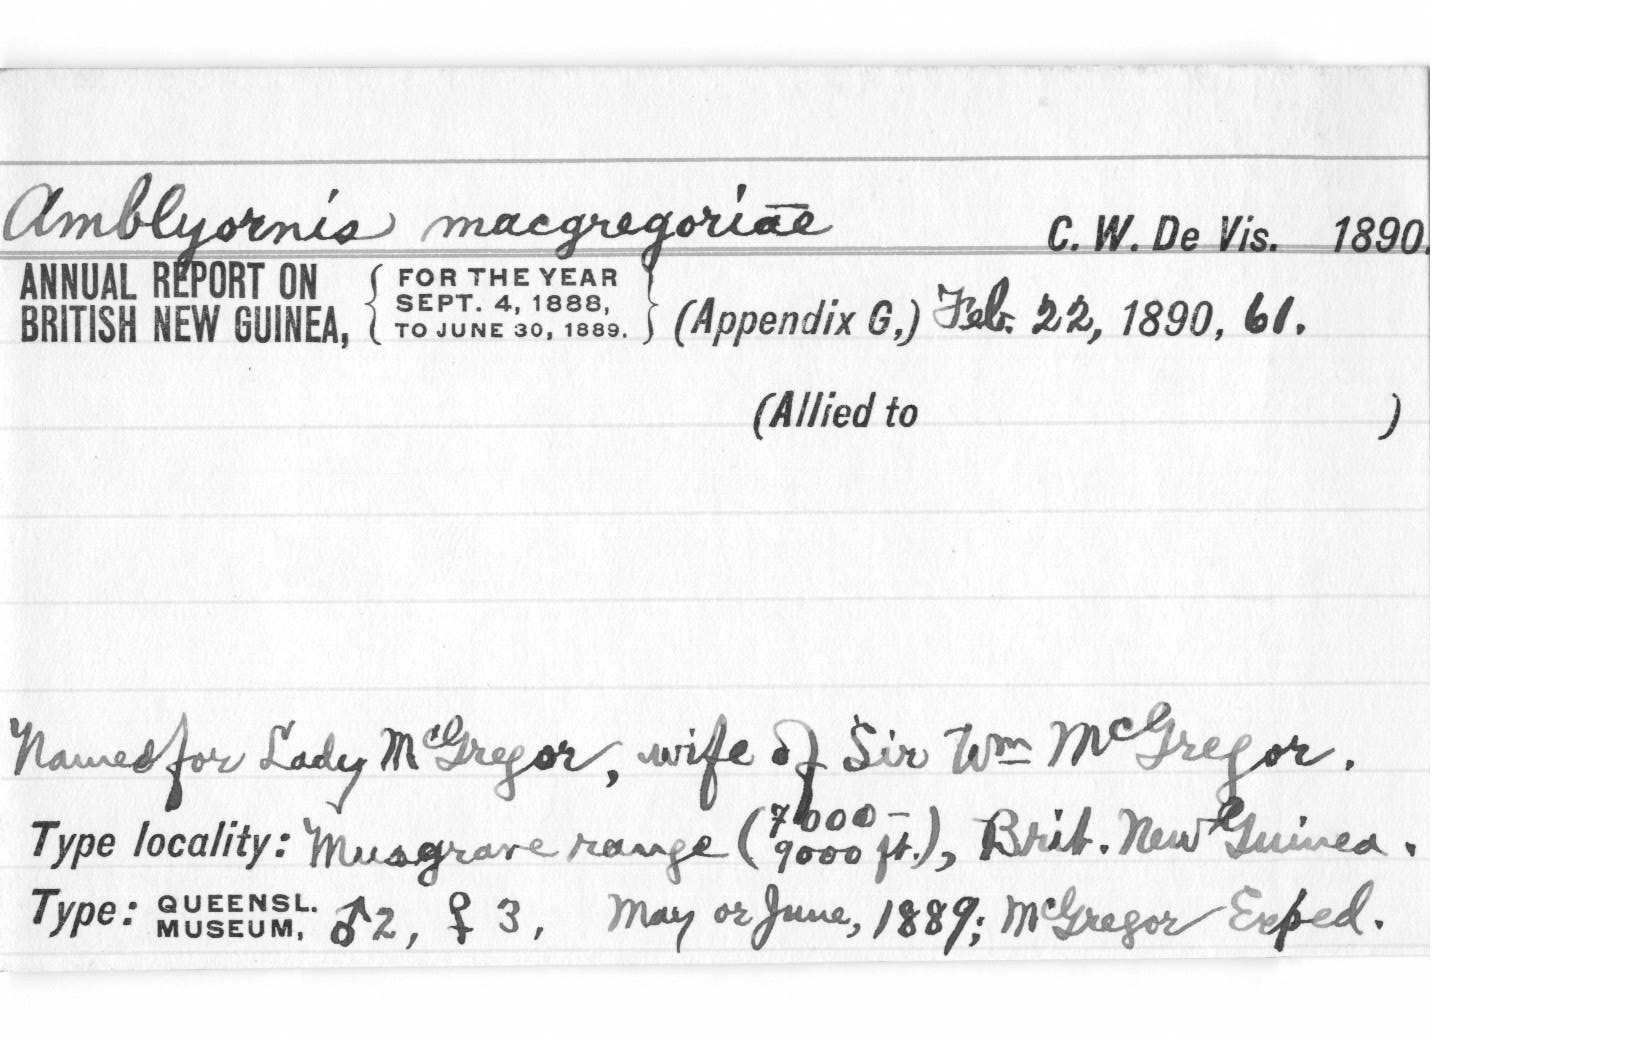 Amblyornis macgregoriae C. W. De Vis. 1890.
ANNUAL REPORT ON BRITISH NEW GUINEA, { FOR THE YEAR SEPT. 4, 1888, TO JUNE 30, 1889. } (Appendix G,) Feb. 22, 1890, 61.
(Allied to )
Named for Lady McGregor, wife of Sir Wm McGregor.
Type locality: Musgrave range (7000-9000 ft.), Brit. New Guinea.
Type: QUEENSL. MUSEUM, ♂2, ♀ 3, May or June, 1889; McGregor Exped.